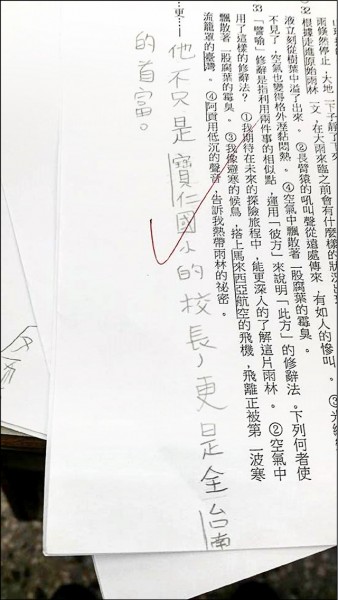 雨倏然停止，大地一下子靜了下來
32 根據走進原始雨林一文，在大雨來臨之前會有什麼樣的狀況
液立刻從樹葉中溢了出來。②長臂猿的吼叫聲從遠處傳來，有如人的慘叫。③光線
不見了，空氣也變得格外溼黏悶熱。④空氣中飄散著一股腐葉的霉臭。
33 「譬喻」修辭是指利用兩件事的相似點，運用「彼方」來說明「此方」的修辭法。下列何者使
用了這樣的修辭法？①我期待在未來的探險旅程中，能更深入的了解這片雨林。②空氣中
飄散著一股腐葉的霉臭。③我像避寒的候鳥，搭上馬來西亞航空的飛機，飛離正被第一波寒
流籠罩的臺灣。④阿貢用低沉的聲音，告訴我熱帶雨林的祕密。
更……
他不只是寶仁國小的校長，更是全台南
的首富。